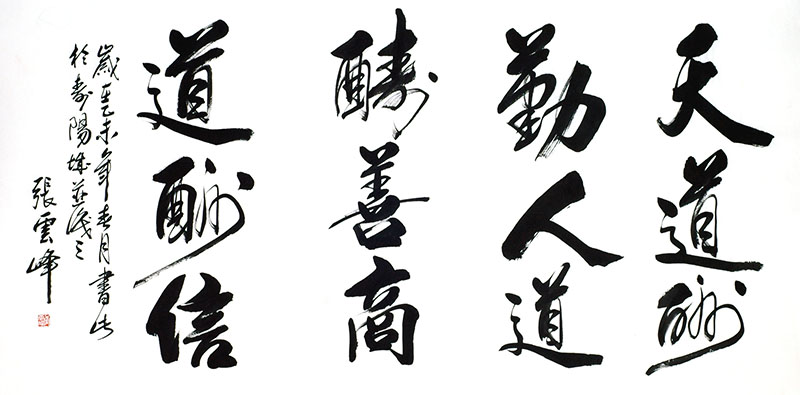 天道酬
勤人道
酬善商
道酬信
歲乙未年春月書
於壽陽城並識之
張雲峰